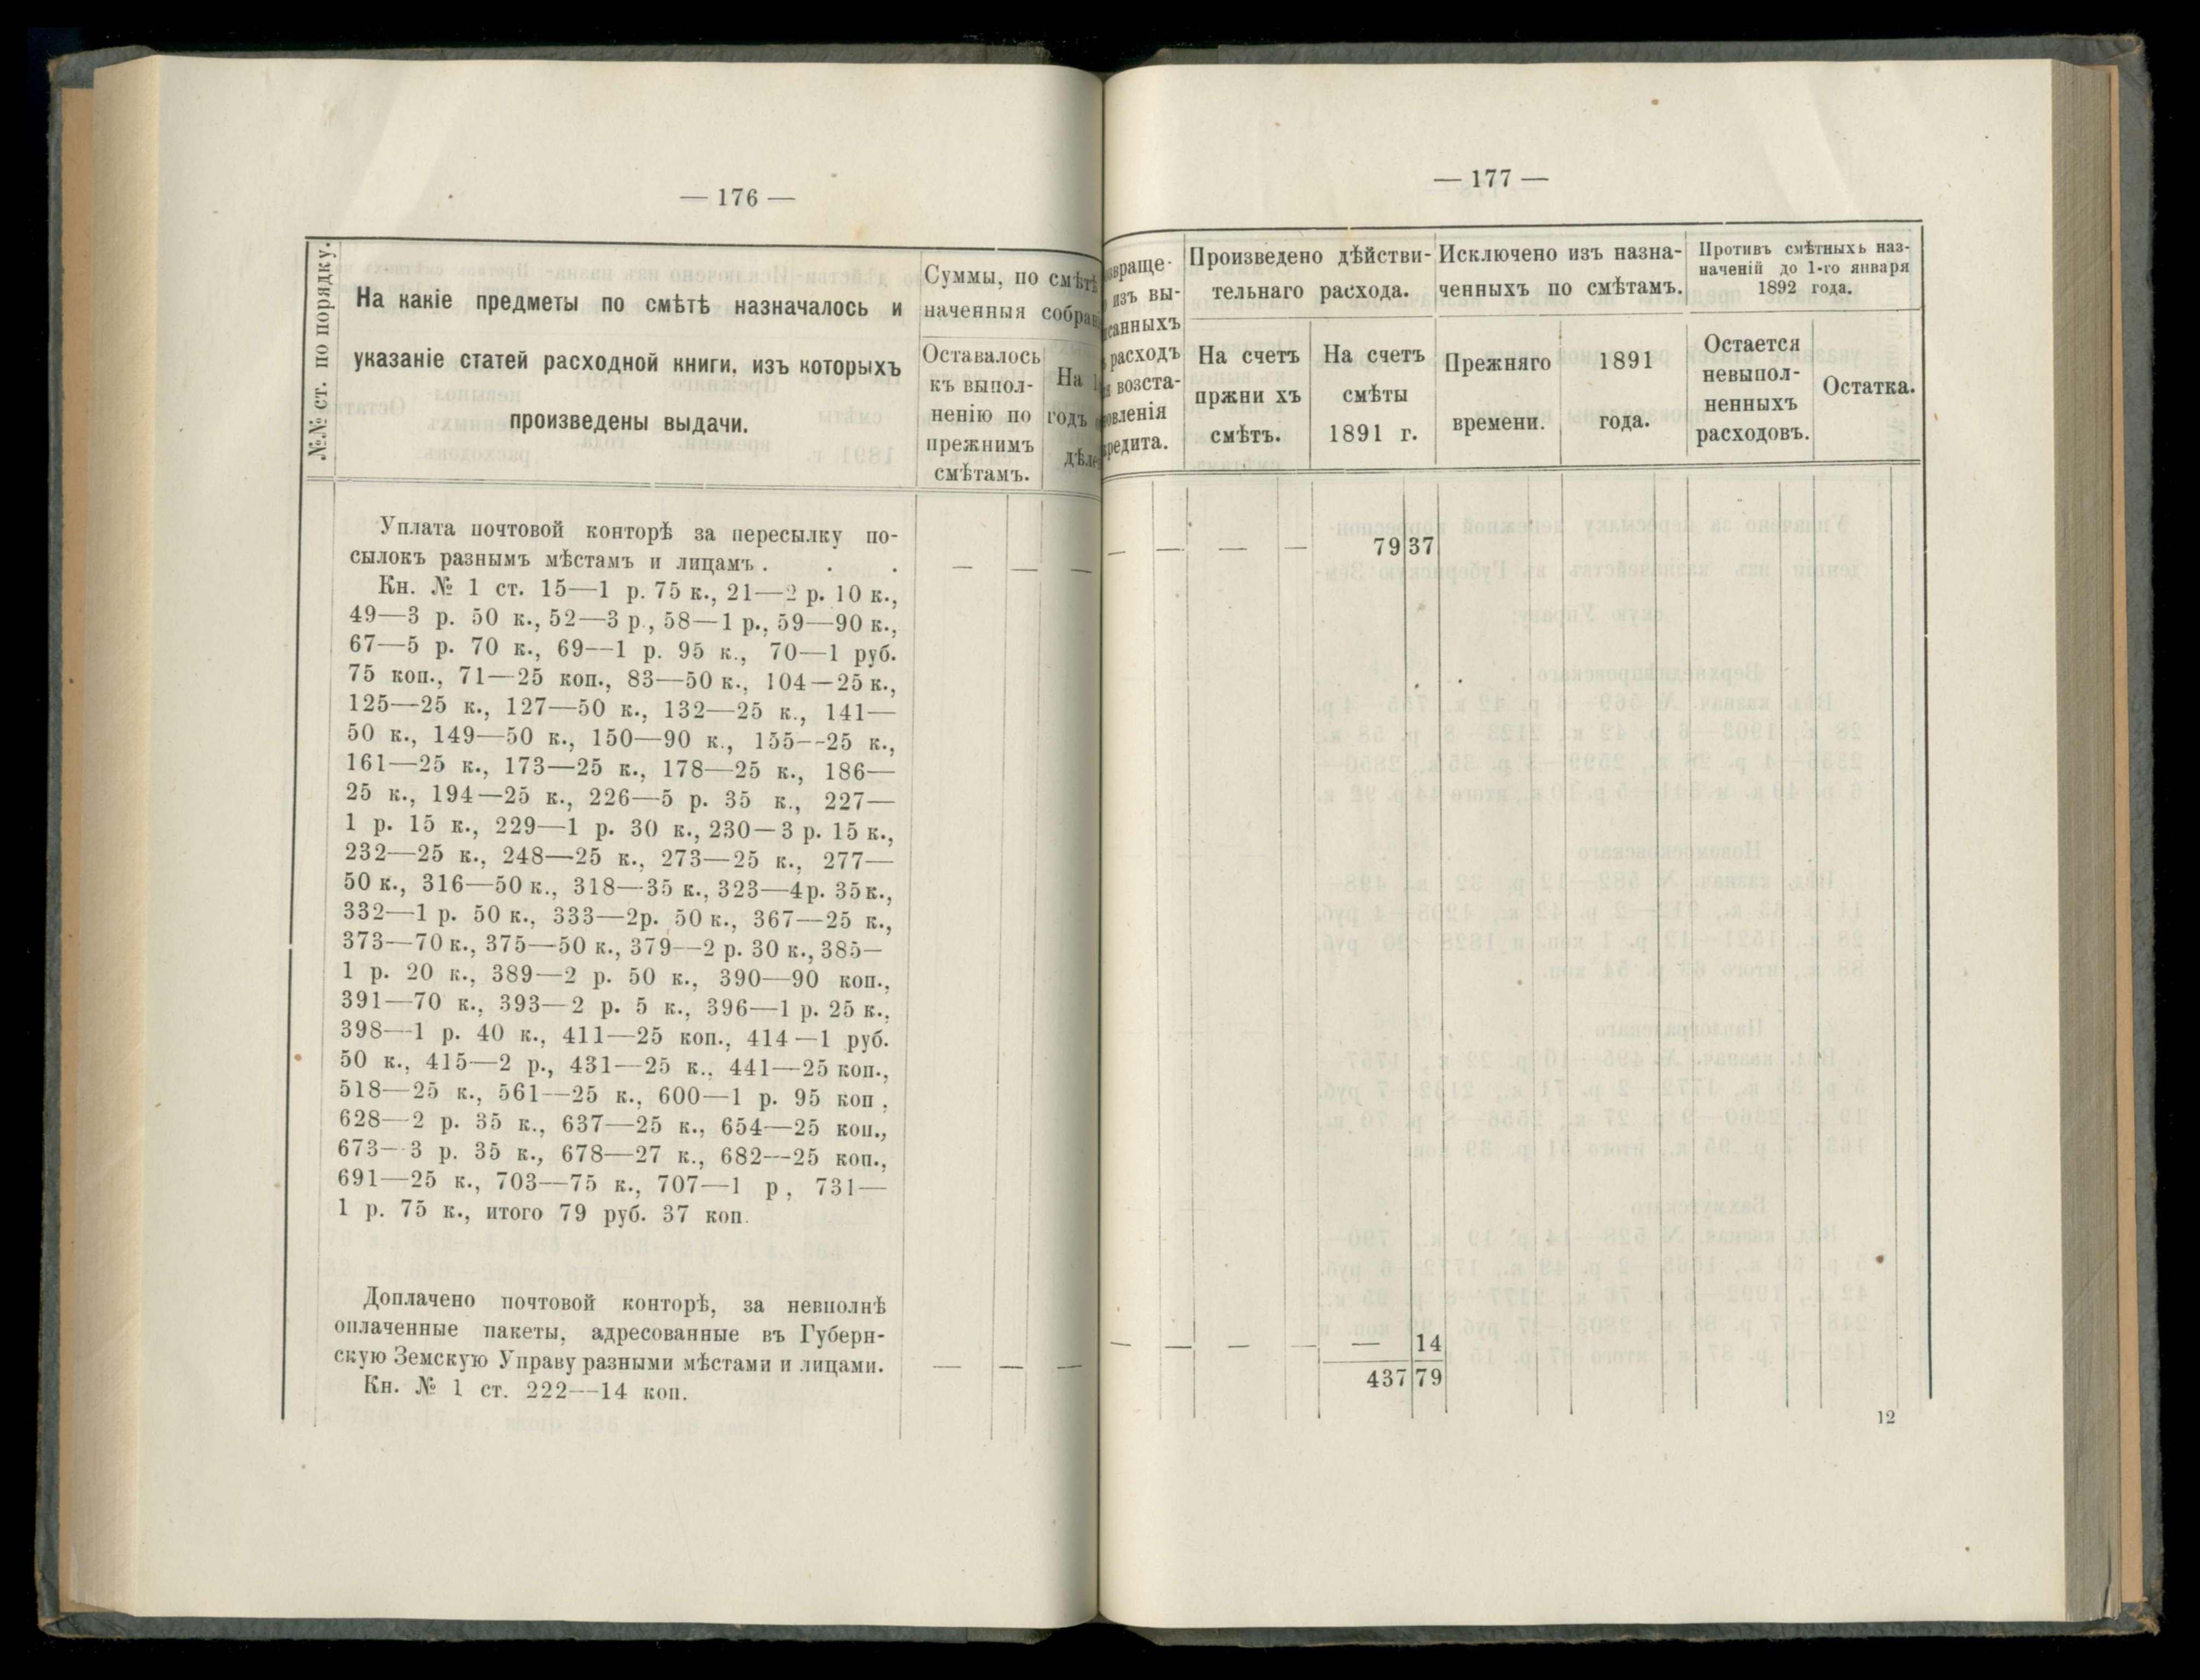 — 176 —
№№ ст. по порядку.
На какіе предметы по смѣтѣ назначалось и
указаніе статей расходной книги, изъ которыхъ
произведены выдачи.
Суммы, по смѣтѣ
наченныя
Оставалось
къ выпол-
ненію по
прежнимъ
смѣтамъ.
На
годъ
Уплата почтовой конторѣ за пересылку по-
сылокъ разнымъ мѣстамъ и лицамъ . . .
— — —
Кн. № 1 ст. 15—1 р. 75 к., 21—2 р. 10 к.,
49—3 р. 50 к., 52—3 р., 58—1 р., 59—90 к.,
67—5 р. 70 к., 69—1 р. 95 к., 70—1 руб.
75 коп., 71—25 коп., 83—50 к., 104—25 к.,
125—25 к., 127—50 к., 132—25 к., 141—
50 к., 149—50 к., 150—90 к., 155—25 к.,
161—25 к., 173—25 к., 178—25 к., 186—
25 к., 194—25 к., 226—5 р. 35 к., 227—
1 р. 15 к., 229—1 р. 30 к., 230—3 р. 15 к.,
232—25 к., 248—25 к., 273—25 к., 277—
50 к., 316—50 к., 318—35 к., 323—4р. 35к.,
332—1 р. 50 к., 333—2р. 50 к., 367—25 к.,
373—70 к., 375—50 к., 379—2 р. 30 к., 385—
1 р. 20 к., 389—2 р. 50 к., 390—90 коп.,
391—70 к., 393—2 р. 5 к., 396—1 р. 25 к.,
398—1 р. 40 к., 411—25 коп., 414—1 руб.
50 к., 415—2 р., 431—25 к., 441—25 коп.,
518—25 к., 561—25 к., 600—1 р. 95 коп.,
628—2 р. 35 к., 637—25 к., 654—25 коп.,
673—3 р. 35 к., 678—27 к., 682—25 коп.,
691—25 к., 703—75 к., 707—1 р, 731—
1 р. 75 к., итого 79 руб. 37 коп.
Доплачено почтовой конторѣ, за невполнѣ
оплаченные пакеты, адресованные въ Губерн-
скую Земскую Управу разными мѣстами и лицами.
— — —
Кн. № 1 ст. 222—14 коп.
— 177 —
изъ вы-
расходъ
возста-
Произведено дѣйстви-
тельнаго расхода.
На счетъ
пржни хъ
смѣтъ.
На счетъ
смѣты
1891 г.
Исключено изъ назна-
ченныхъ по смѣтамъ.
Прежняго
времени.
1891
года.
Противъ смѣтныхъ наз-
наченій до 1-го января
1892 года.
Остается
невыпол-
ненныхъ
расходовъ.
Остатка.
— — — — 79 37
— — — — — 14
437 79
12